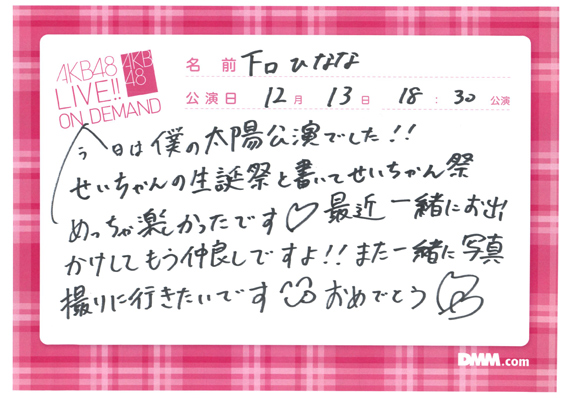 AKB48
LIVE!!
ON DEMAND
AKB
48
名 前 下口ひなな
公演日 12月 13日 18:30 公演
今日は僕の太陽公演でした!!
せいちゃんの生誕祭と書いてせいちゃん祭
めっちゃ楽しかったです♡最近一緒にお出
かけしてもう仲良しですよ!!また一緒に写真
撮りに行きたいです おめでとう
DMM.com